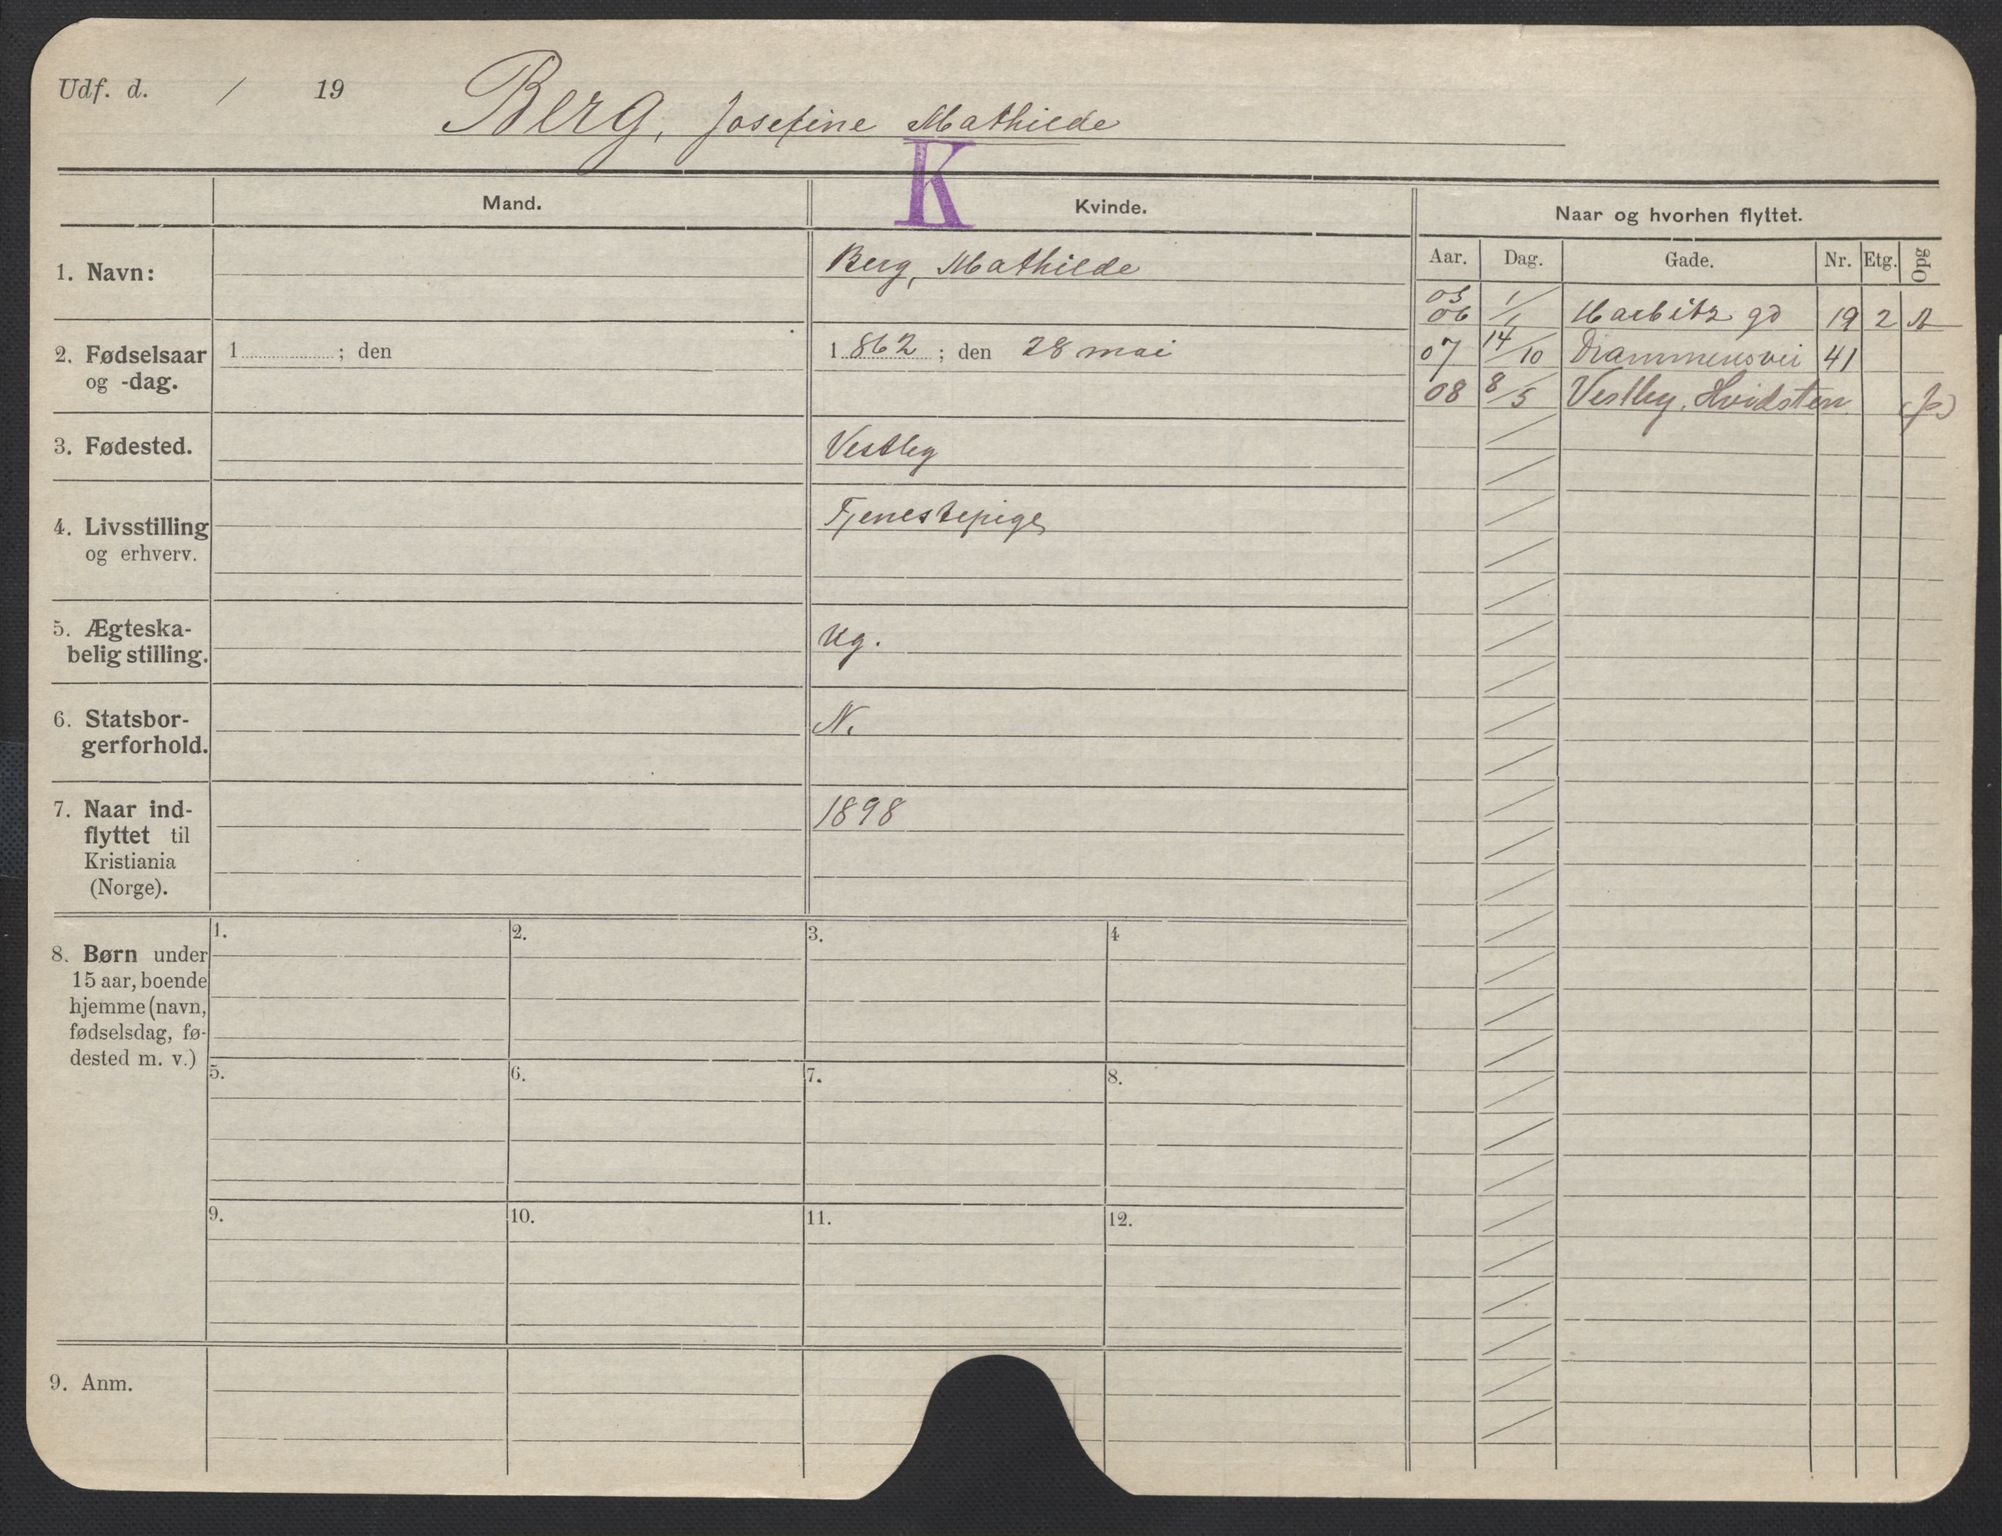 Udf. d. / 19
Berg, Josefine Mathilde
K
Mand.
Kvinde.
Naar og hvorhen flyttet.
Aar. Dag. Gade. Nr. Etg. Opg
1. Navn:
Berg, Mathilde
05 1/1
06 Harbitz gd 19 2 A
2. Fødselsaar og -dag.
1 ; den
1 862 ; den 28 mai
07 14/10 Drammensvei 41
08 8/5 Vestby, Hvidsten
3. Fødested.
Vestby
4. Livsstilling og erhverv.
Tjenestepige
5. Ægteska-
belig stilling.
Ug.
6. Statsbor-
gerforhold.
N.
7. Naar ind-
flyttet til
Kristiania
(Norge).
1898
8. Børn under
15 aar, boende
hjemme (navn,
fødselsdag, fø-
dested m. v.)
1. 2. 3. 4
5. 6. 7. 8.
9. 10. 11. 12.
9. Anm.